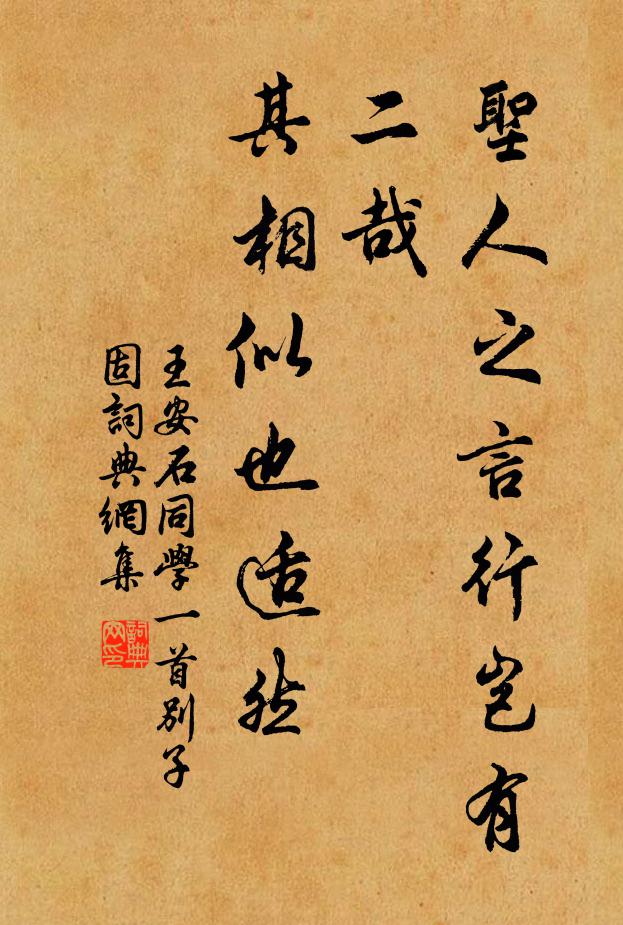 聖人之言行岂有
二哉
其相似也适然
王安石同學一首别子
固詞典網集
詞典
网印